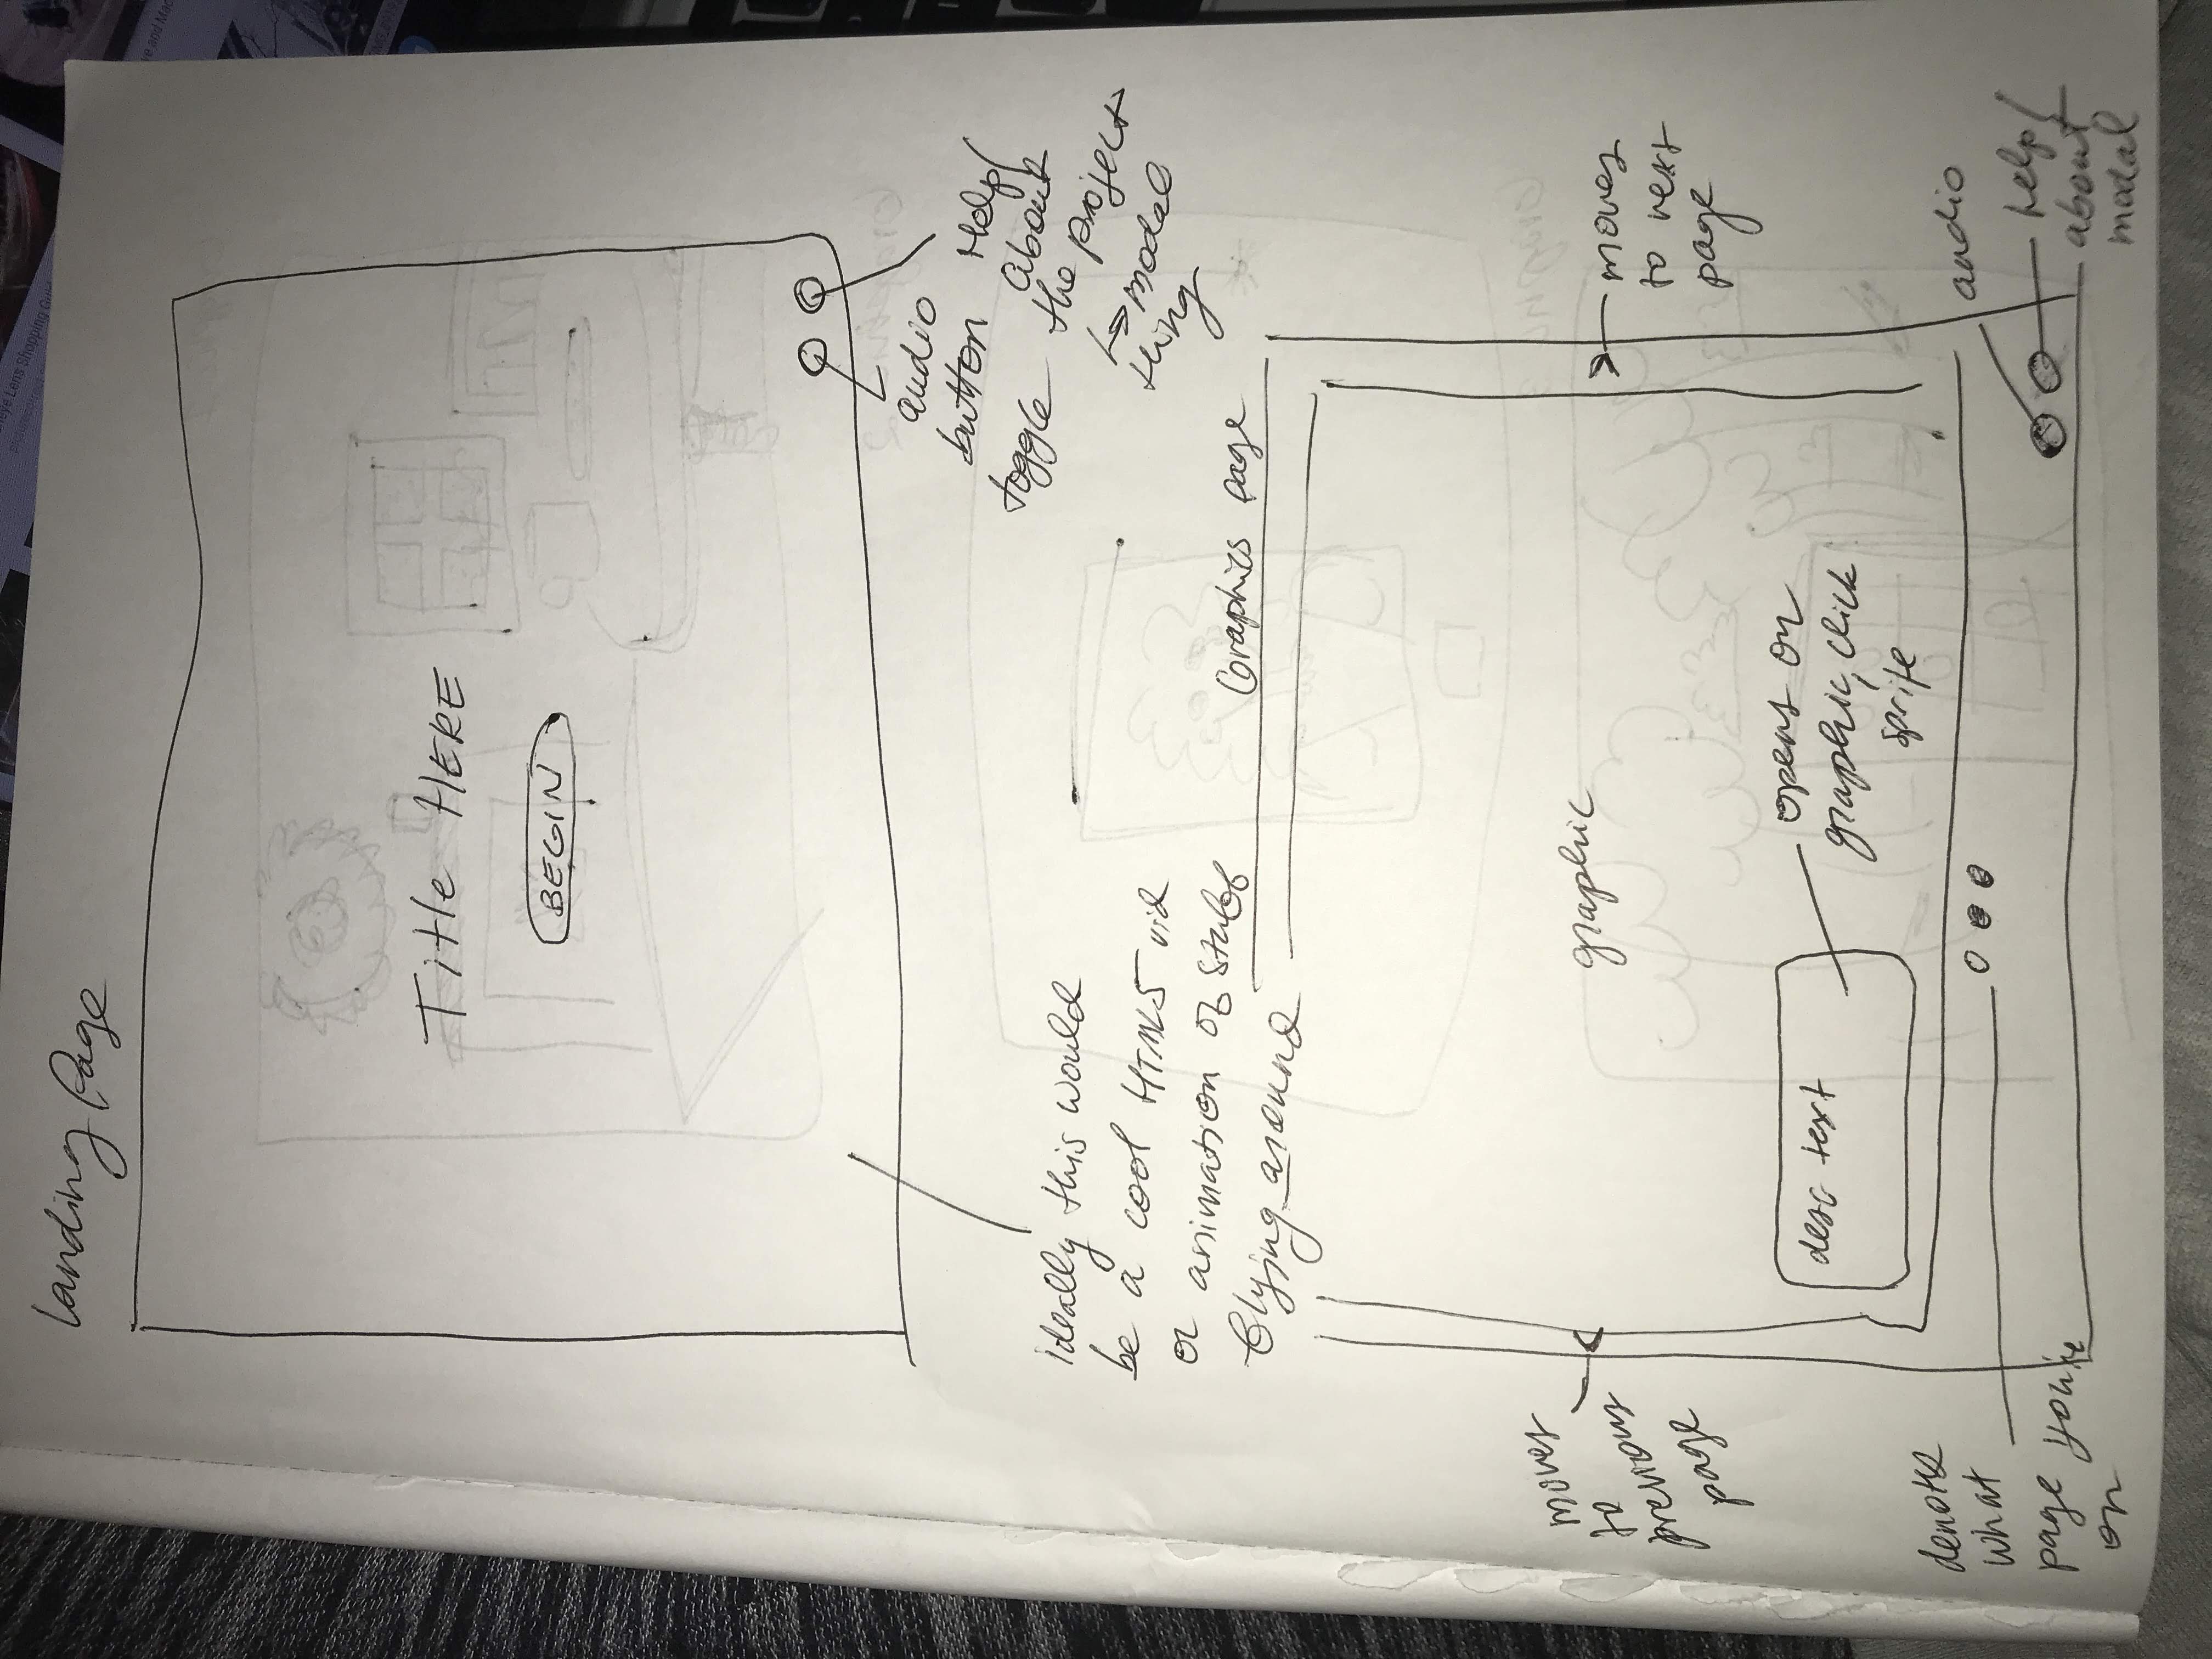 Landing Page
Title HERE
BEGIN
audio
button
toggle
Help/
about
the project
↳ modal
thing
ideally this would
be a cool HTML5 vid
or animation of stuff
flying around
Graphics page
moves
to
previous
page
graphic
moves
to next
page
desc text
opens on
graphic, click
sprite
denote
what
page you're
on
audio
help/
about
modal